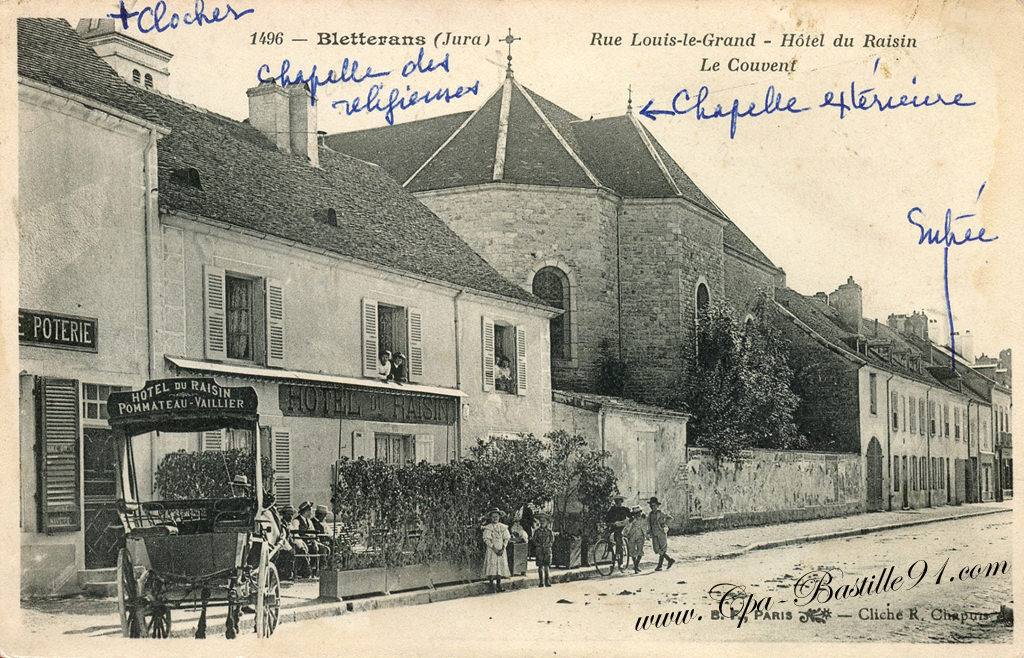 + Clocher
1496 — Bletterans (Jura)
Rue Louis-le-Grand - Hôtel du Raisin
Le Couvent
Chapelle des
religieuses
← Chapelle extérieure
Entrée
E POTERIE
HOTEL DU RAISIN
POMMATEAU-VAILLIER
HOTEL DU RAISIN
www.Cpa-Bastille91.com
B. F., PARIS — Cliché R. Chapuis